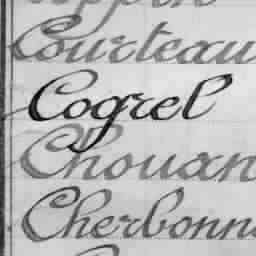 Courteau
Cogrel
Chouan
Cherbonn